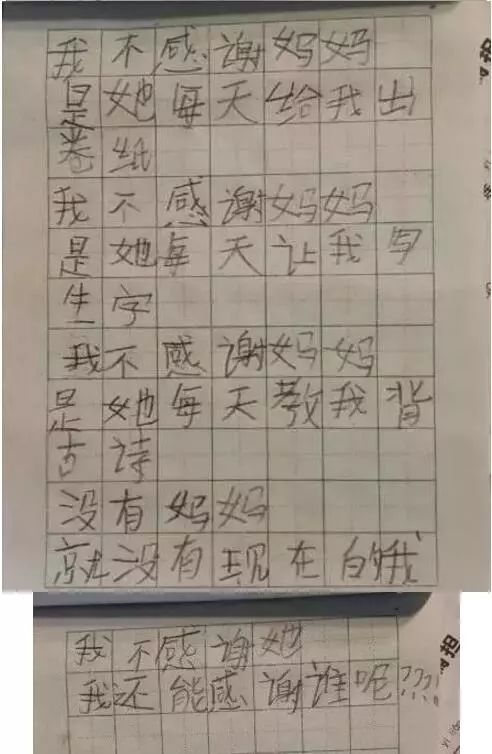 我不感谢妈妈
是她每天给我出
卷纸
我不感谢妈妈
是她每天让我写
生字
我不感谢妈妈
是她每天教我背
古诗
没有妈妈
就没有现在的我
我不感谢她
我还能感谢谁呢???